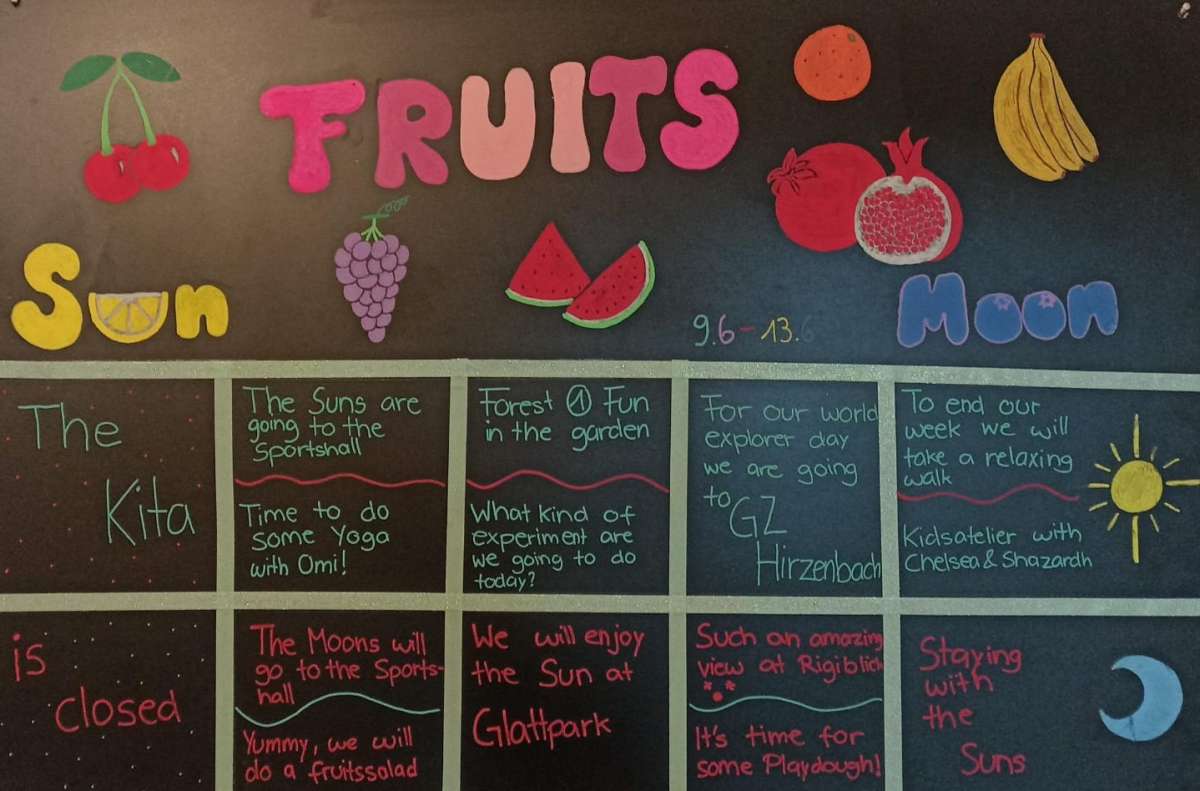 FRUITS
Sun
Moon
9.6-13.6
The
Kita
The Suns are
going to the
Sportshall
Time to do
some Yoga
with Omi!
Forest ① Fun
in the garden
What kind of
experiment are
we going to do
today?
For our world
explorer day
we are going
to GZ
Hirzenbach
To end our
week we will
take a relaxing
walk
Kidsatelier with
Chelsea & Shazardh
is
closed
The Moons will
go to the Sports-
hall
Yummy, we will
do a fruitssalad
We will enjoy
the Sun at
Glattpark
Such an amazing
view at Rigiblick
It's time for
some Playdough!
Staying
with
the
Suns